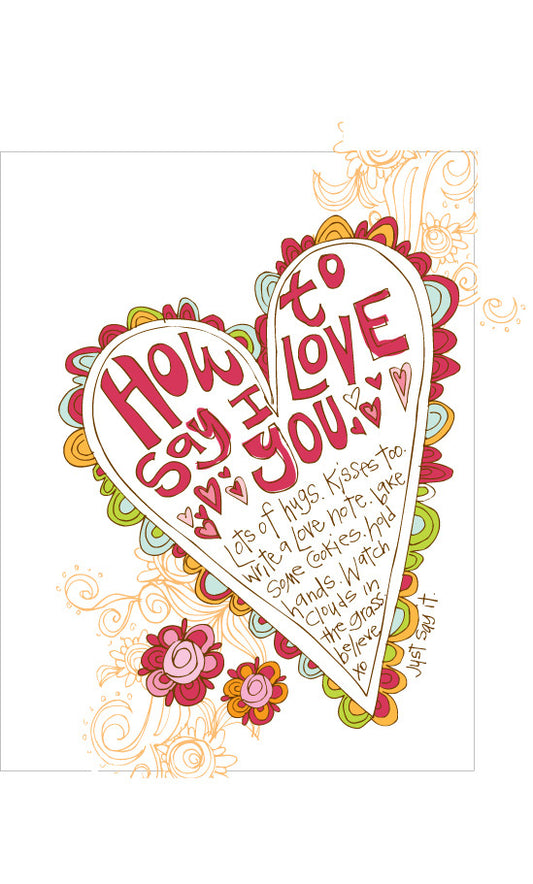 HOW to
Say I LOVE
YOU
Lots of hugs. Kisses too.
write a Love note. bake
Some Cookies. hold
hands. Watch
Clouds in
the grass.
believe
xo
Just say it.